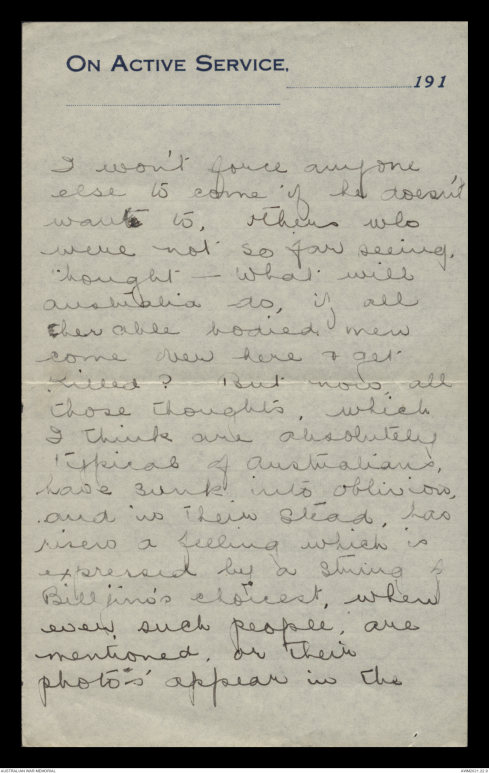 ON ACTIVE SERVICE,
191
I won't force anyone
else to come if he doesn't
want to, others who
were not so far seeing,
thought — What will
australia do, if all
her able bodied men
come over here & get
killed? But now, all
those thoughts, which
I think are absolutely
typical of Australians,
have sunk into oblivion,
and in their stead, has
risen a feeling which is
expressed by a string of
Billjim's choicest, when
ever, such people, are
mentioned, or their
photo's appear in the
AUSTRALIAN WAR MEMORIAL